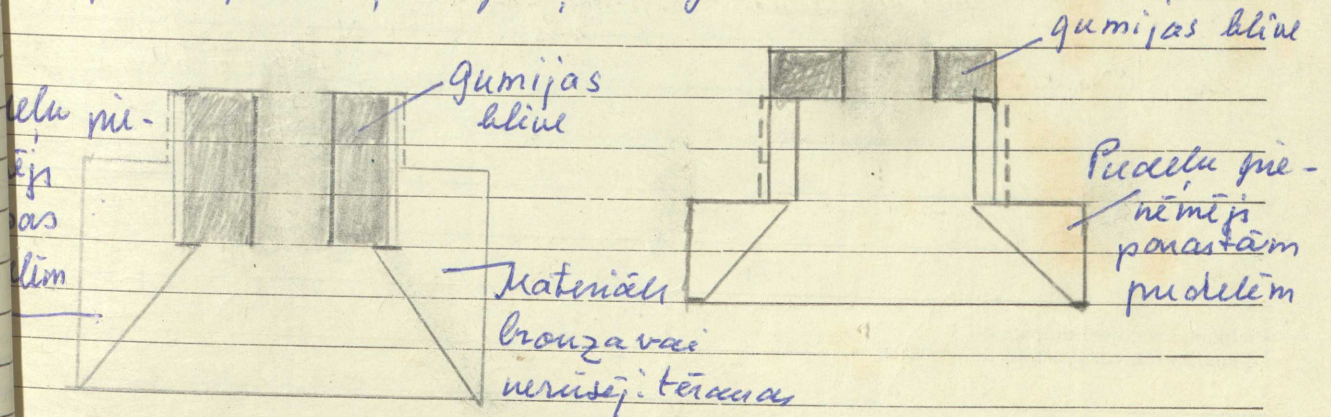 gumijas blīve
gumijas
blīve
pie-
Pudeļu pie-
ņēmējs
parastām
pudelēm
Materiāls
bronza vai
nerūsēj. tērauds